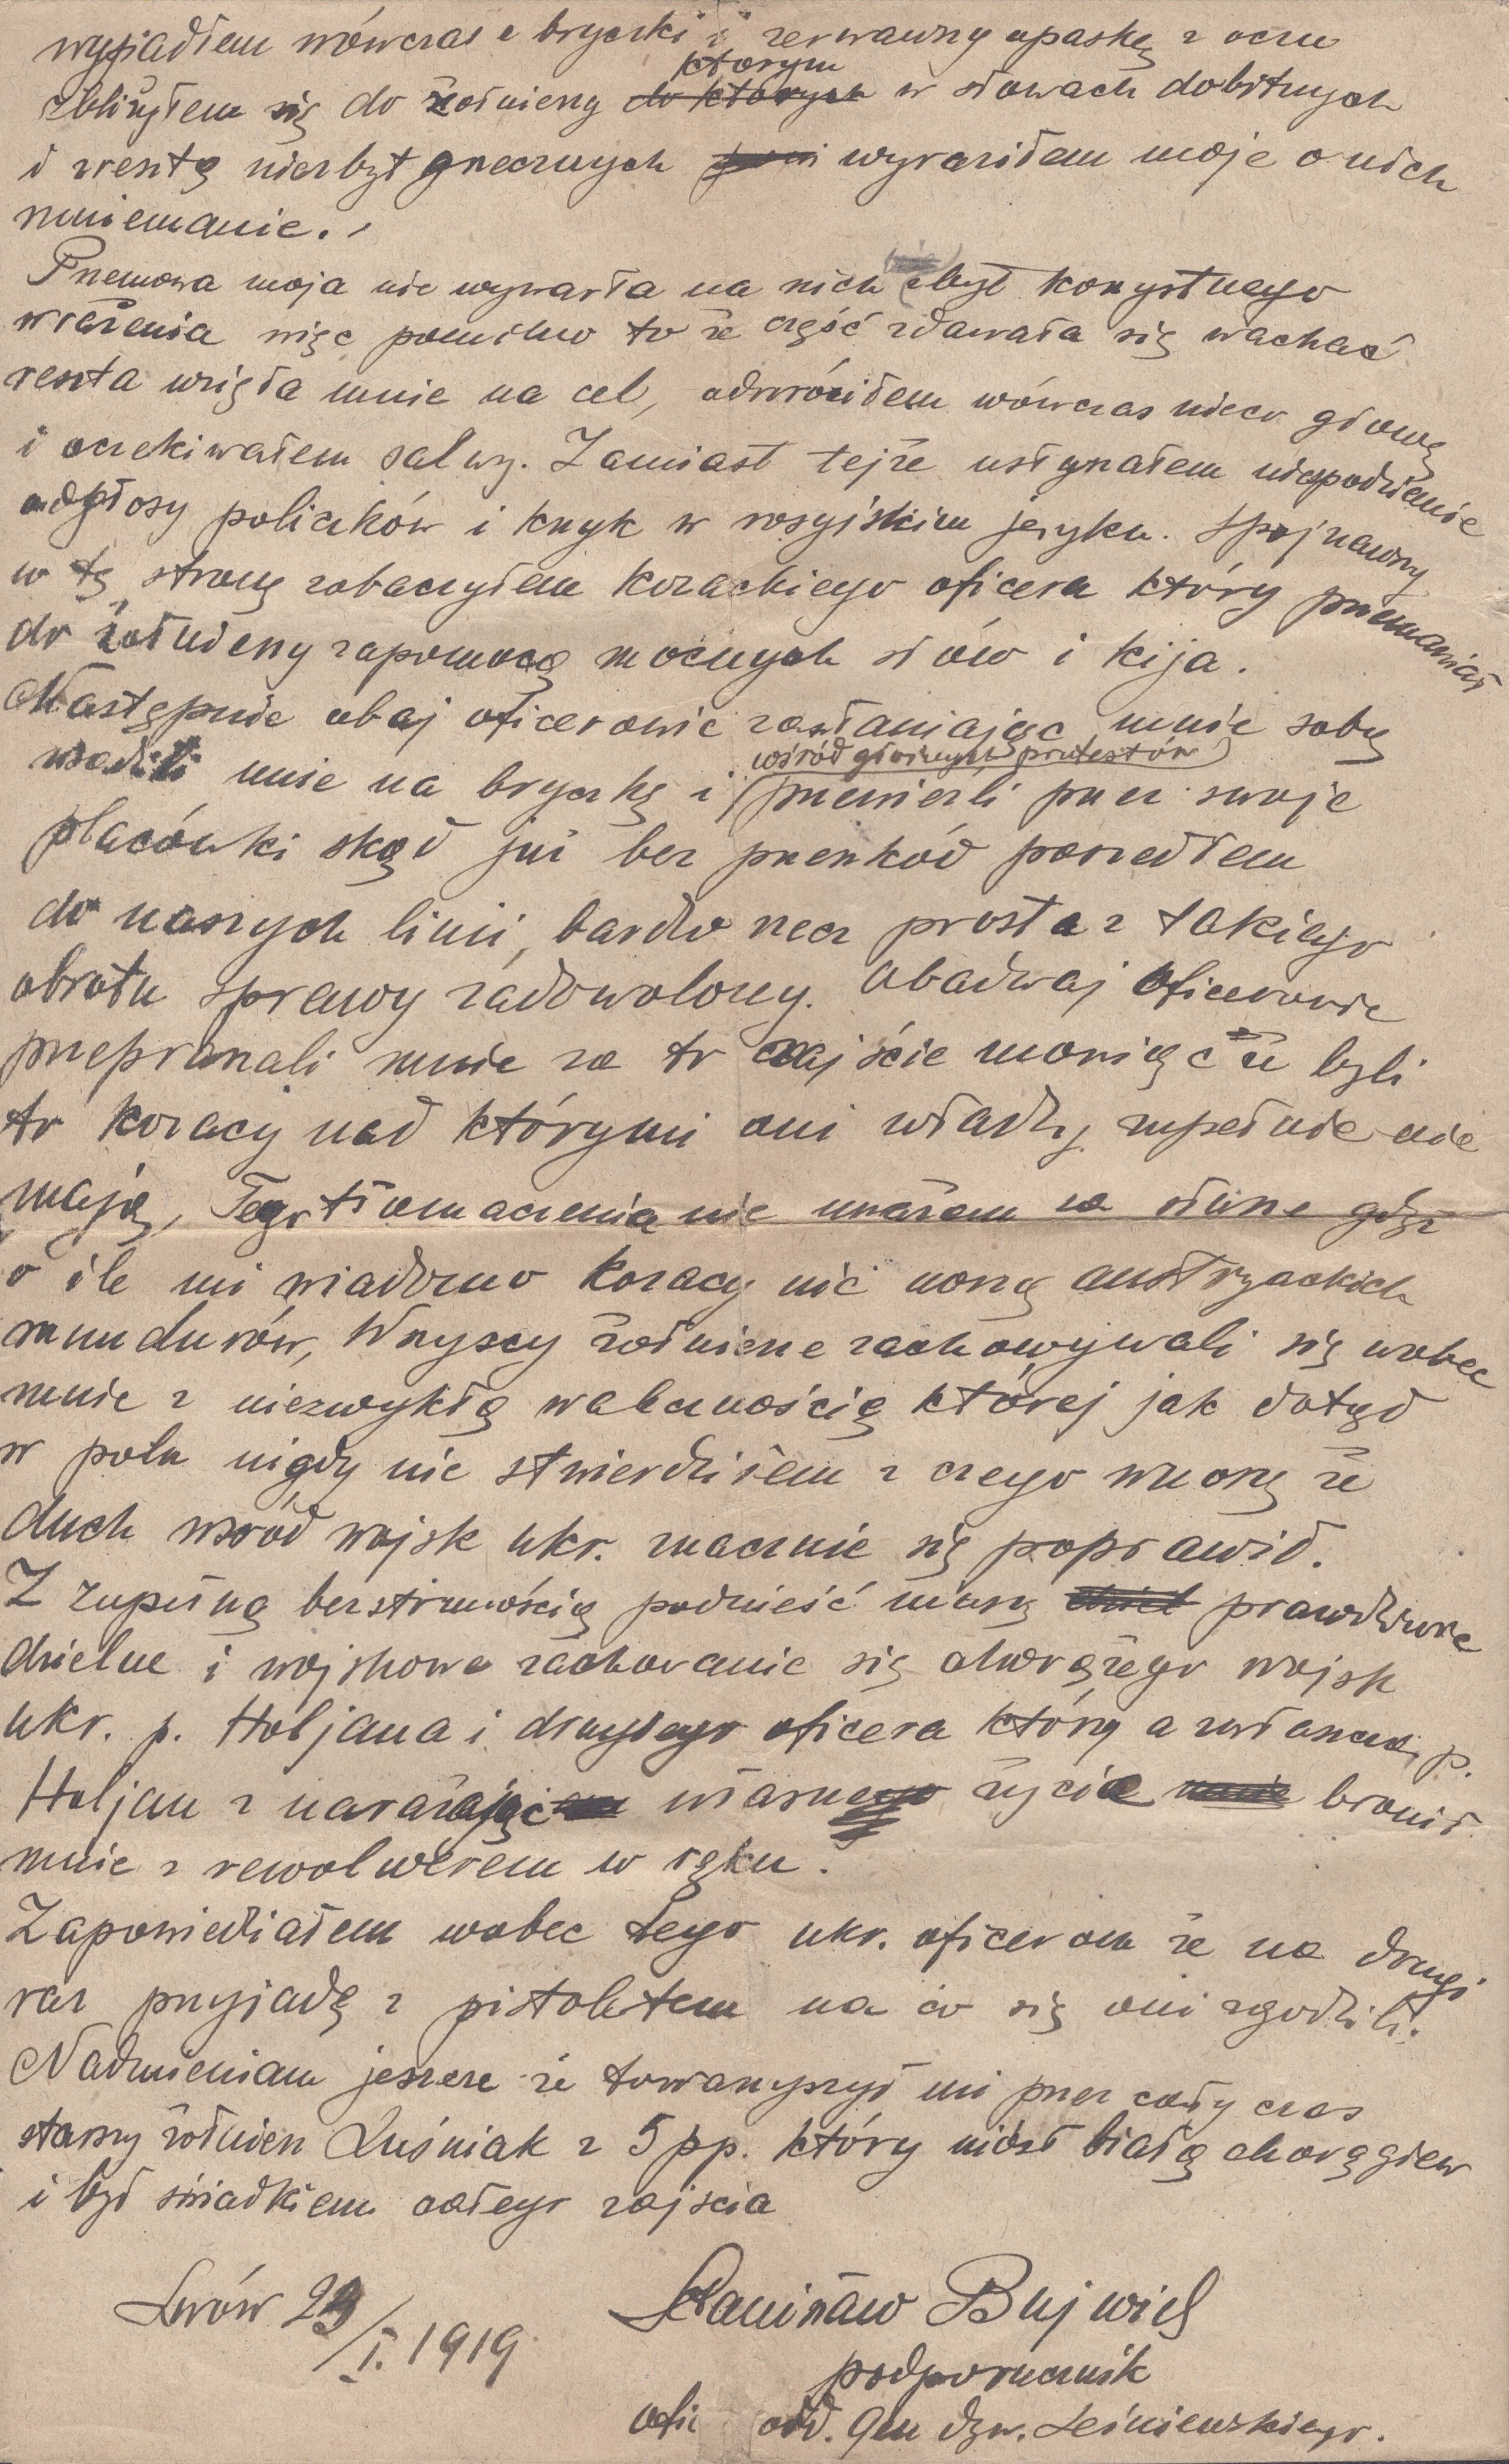 wysiadłem wówczas z bryczki i zerwawszy opaskę z oczu
zbliżyłem się do żołnierzy do których którym w słowach dobitnych
i zresztą niezbyt grzecznych wyraziłem moje o nich
mniemanie.
Przemowa moja nie wywarła na nich zbyt korzystnego
wrażenia więc pomimo to że część zdawała się wachać
reszta wzięła mnie na cel, odwróciłem wówczas nieco głowę
i oczekiwałem salwy. Zamiast tejże usłyszałem niespodzianie
odgłosy policzków i krzyk w rosyjskim języku. Spojrzawszy
w tę stronę zobaczyłem kozackiego oficera który przemawiał
do żołnierzy zapomocą mocnych słów i kija.
Następnie obaj oficerowie zasłaniając mnie sobą
wsadzili mnie na bryczkę i wśród głośnych protestów przewieźli przez swoje
placówki skąd już bez przeszkód poszedłem
do naszych linii, bardzo rzecz prosta z takiego
obrotu sprawy zadowolony. Obadwaj oficerowie
przepraszali mnie za to zajście mówiąc że byli
to kozacy nad którymi oni władzy zupełnie nie
mają, Tego tłomaczenia nie uważam za słuszne gdyż
o ile mi wiadomo kozacy nie noszą austrzackich
mundurów, Wszyscy żołnierze zachowywali się wobec
mnie z niezwykłą walecznością której jak dotąd
w polu nigdy nie stwierdziłem z czego wnoszę że
duch wśród wojsk ukr. znacznie się poprawił.
Z zupełną bezstronnością podnieść muszę prawdziwie
dzielne i wojskowe zachowanie się chorążego wojsk
ukr. p. Holjana i drugiego oficera którzy a zwłaszcza p.
Holjan z narażając własne życie mnie bronił
mnie z rewolwerem w ręku.
Zapowiedziałem wobec tego ukr. oficerom że na drugi
raz przyjadę z pistoletem na co się oni zgodzili.
Nadmieniam jeszcze że towarzyszył mi przez cały czas
starszy żołnierz Luśniak z 5 pp. który niósł białą chorągiew
i był świadkiem całego zajścia
Lwów 29/I. 1919
Stanisław Bujwid
podporucznik
ofic odd. Gen dyw. Leśniewskiego.